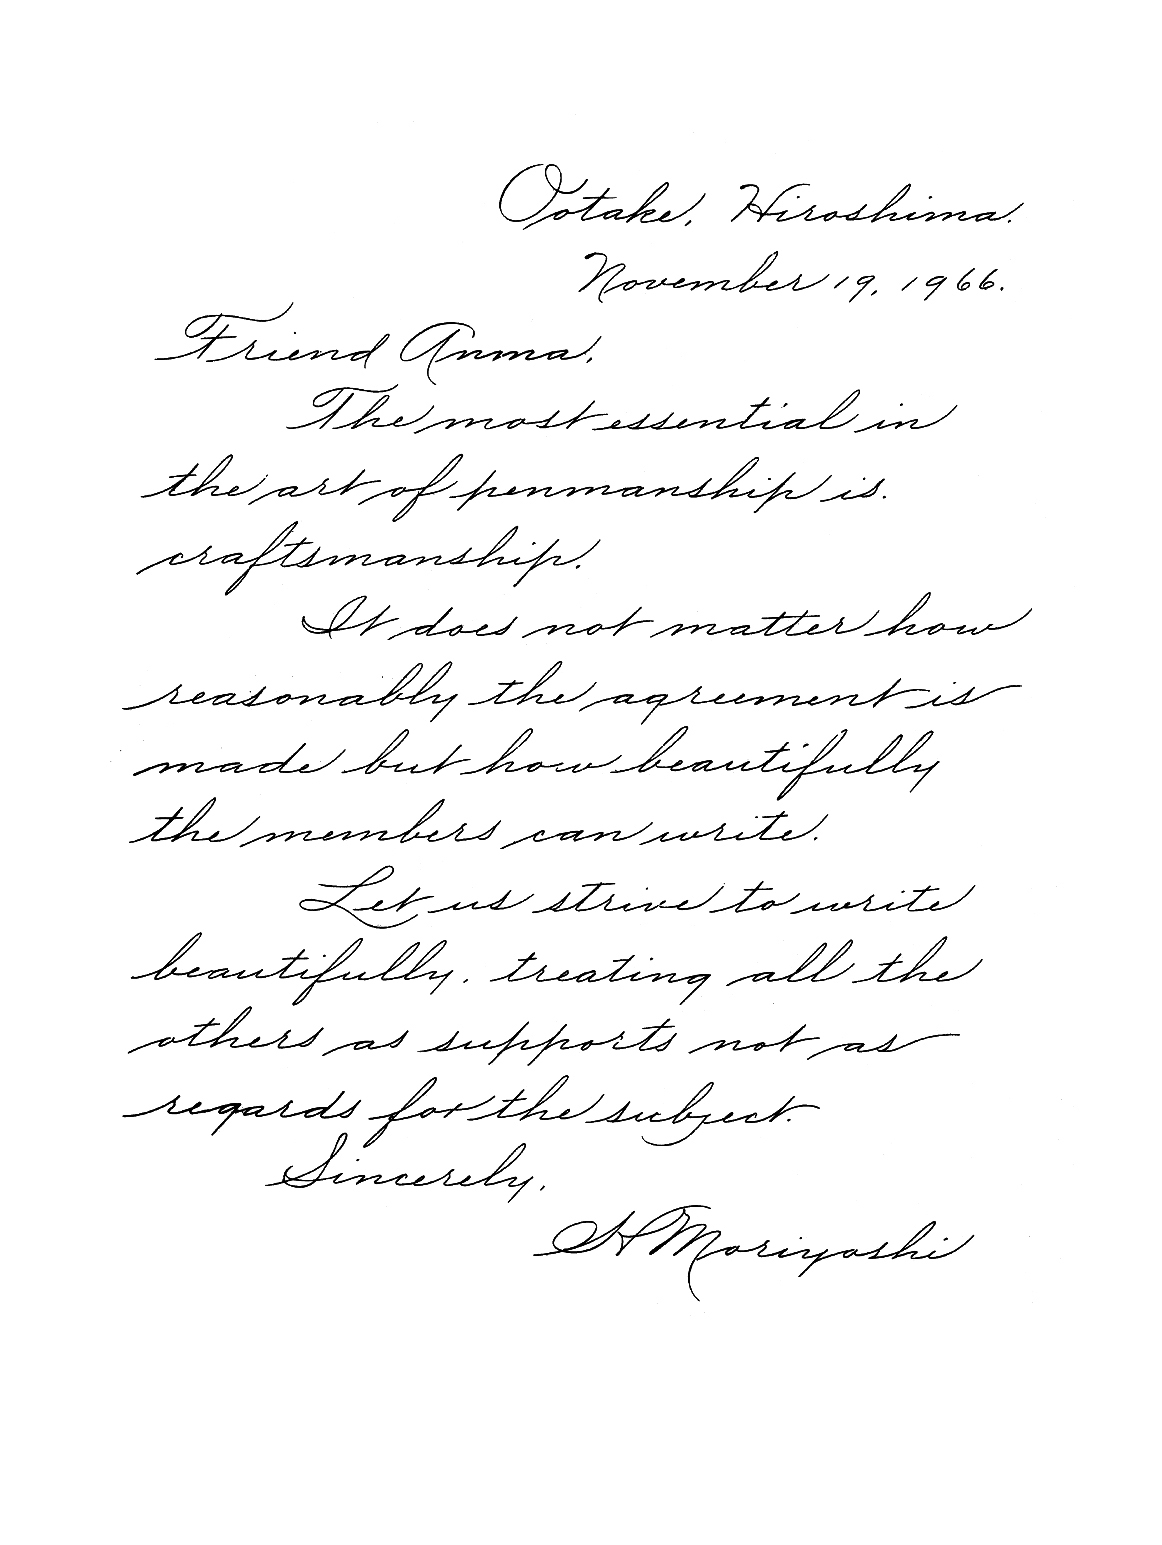 Ootake, Hiroshima.
November 19, 1966.
Friend Anma,
The most essential in
the art of penmanship is.
craftsmanship.
It does not matter how
reasonably the agreement is
made but how beautifully
the members can write.
Let us strive to write
beautifully, treating all the
others as supports not as
regards for the subject.
Sincerely,
H Moriyoshi